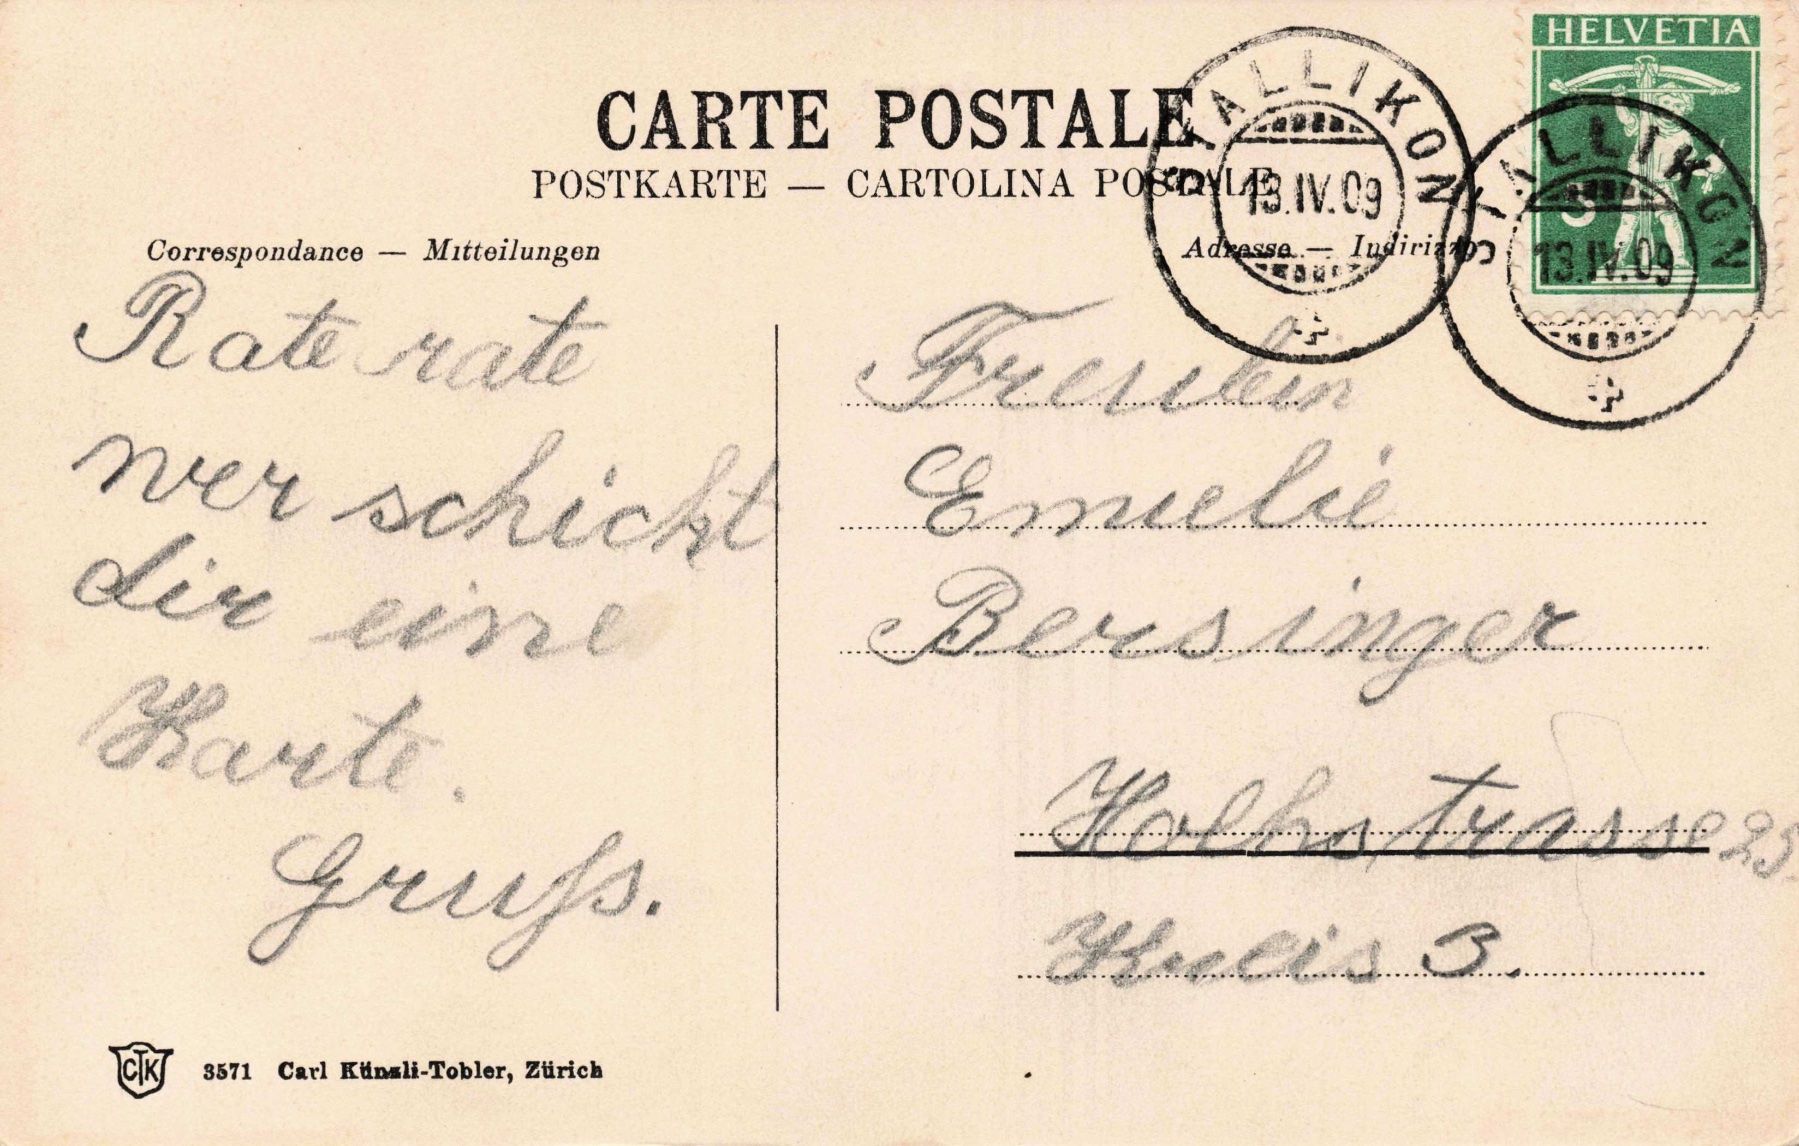 HELVETIA
STALLIKON
13.IV.09
STALLIKON
13.IV.09
5
CARTE POSTALE
POSTKARTE — CARTOLINA POSTALE
Correspondance — Mitteilungen
Adresse — Indirizzo
Rate rate
wer schickt
dir eine
Karte.
Gruss.
Freulein
Emielie
Bersinger
strasse 25
Kreis 3.
CTK
3571 Carl Künzli-Tobler, Zürich